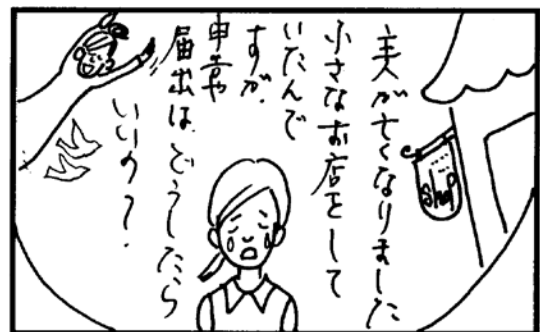 主人が亡くなりました
小さなお店をして
いたんで
すが、
申告や
届出は、どうしたら
いいの？
Shop